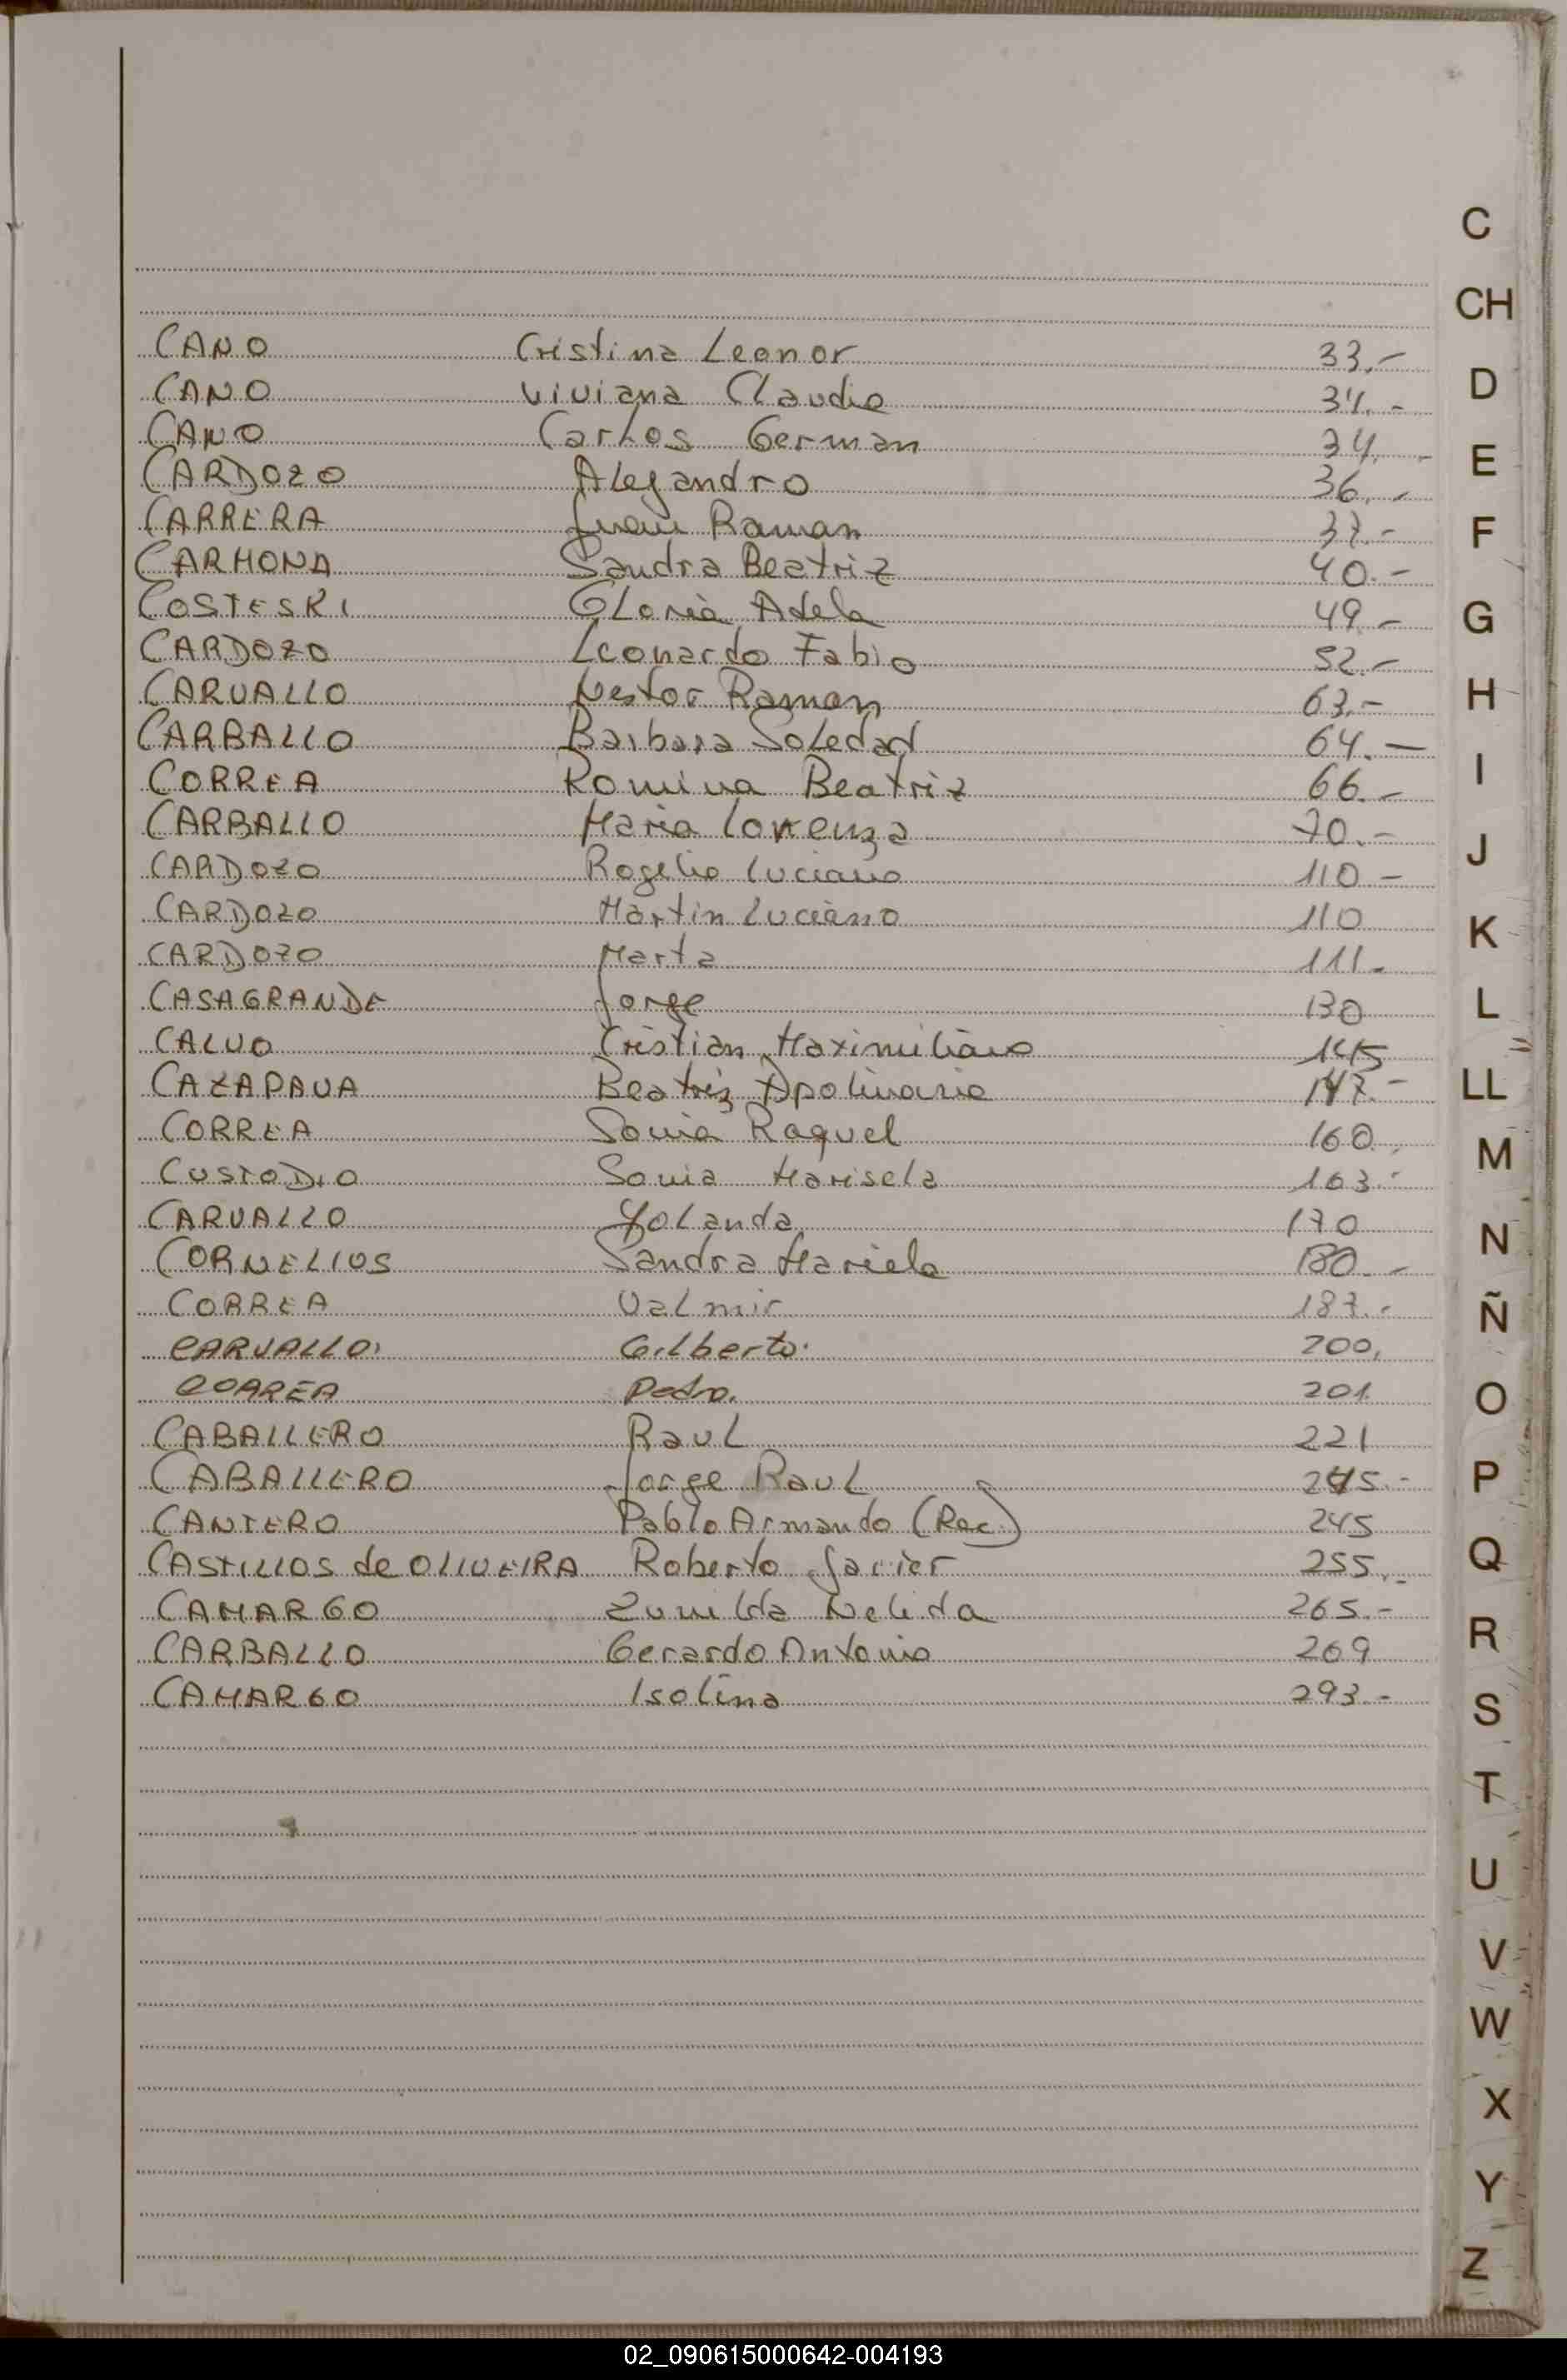 CANO Cristina Leonor 33.-
CANO Viviana Claudia 34.-
CANO Carlos German 34.-
CARDOZO Alejandro 36.-
CARRERA Juan Raman 37.-
CARMONA Sandra Beatriz 40.-
COSTESKI Gloria Adela 49.-
CARDOZO Leonardo Fabio 52.-
CARVALLO Nestor Raman 63.-
CARBALLO Barbara Soledad 64.-
CORREA Romina Beatriz 66.-
CARBALLO Maria Lorenza 70.-
CARDOZO Rogelio Luciano 110-
CARDOZO Martin Luciano 110
CARDOZO Marta 111.
CASAGRANDE Jorge 130
CALVO Cristian Maximiliano 145
CAZAPAVA Beatriz Apolinaria 147.-
CORREA Sonia Raquel 160.
CUSTODIO Sonia Marisela 163.-
CARVALLO Yolanda 170
CORNELIOS Sandra Mariela 180.-
CORREA Valmir 187.-
CARVALLO Gilberto. 200.
CORREA Pedro. 201.
CABALLERO Raul 221
CABALLERO Jorge Raul 245.-
CANTERO Pablo Armando (Rec.) 245
CASTILLOS de OLIVEIRA Roberto Javier 255.-
CAMARGO Zunilda Nelida 265.-
CARBALLO Gerardo Antonio 269
CAMARGO Isolina 293.-
C
CH
D
E
F
G
H
I
J
K
L
LL
M
N
Ñ
O
P
Q
R
S
T
U
V
W
X
Y
Z
02_090615000642-004193